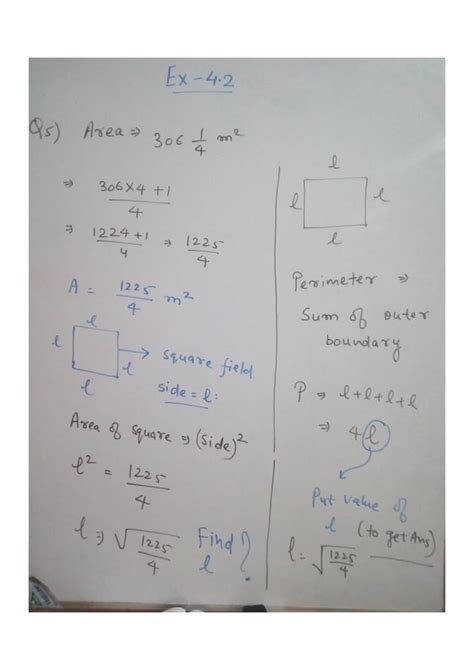 Ex-4.2
Q5) Area ⇒ 306 1/4 m²
⇒ 306×4+1/4
⇒ 1224+1/4 ⇒ 1225/4
A = 1225/4 m²
l
l
l
l
→ square field
side = l.
Area of square ⇒ (Side)²
l² = 1225/4
l ⇒ √1225/4 Find l ?
l
l
l
l
Perimeter ⇒
Sum of outer
boundary
P ⇒ l+l+l+l
⇒ 4l
Put value of
l (to get Ans)
l = √1225/4